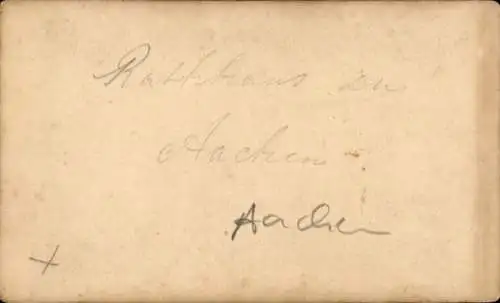 Rathhaus zu
Aachen.
Aachen
+